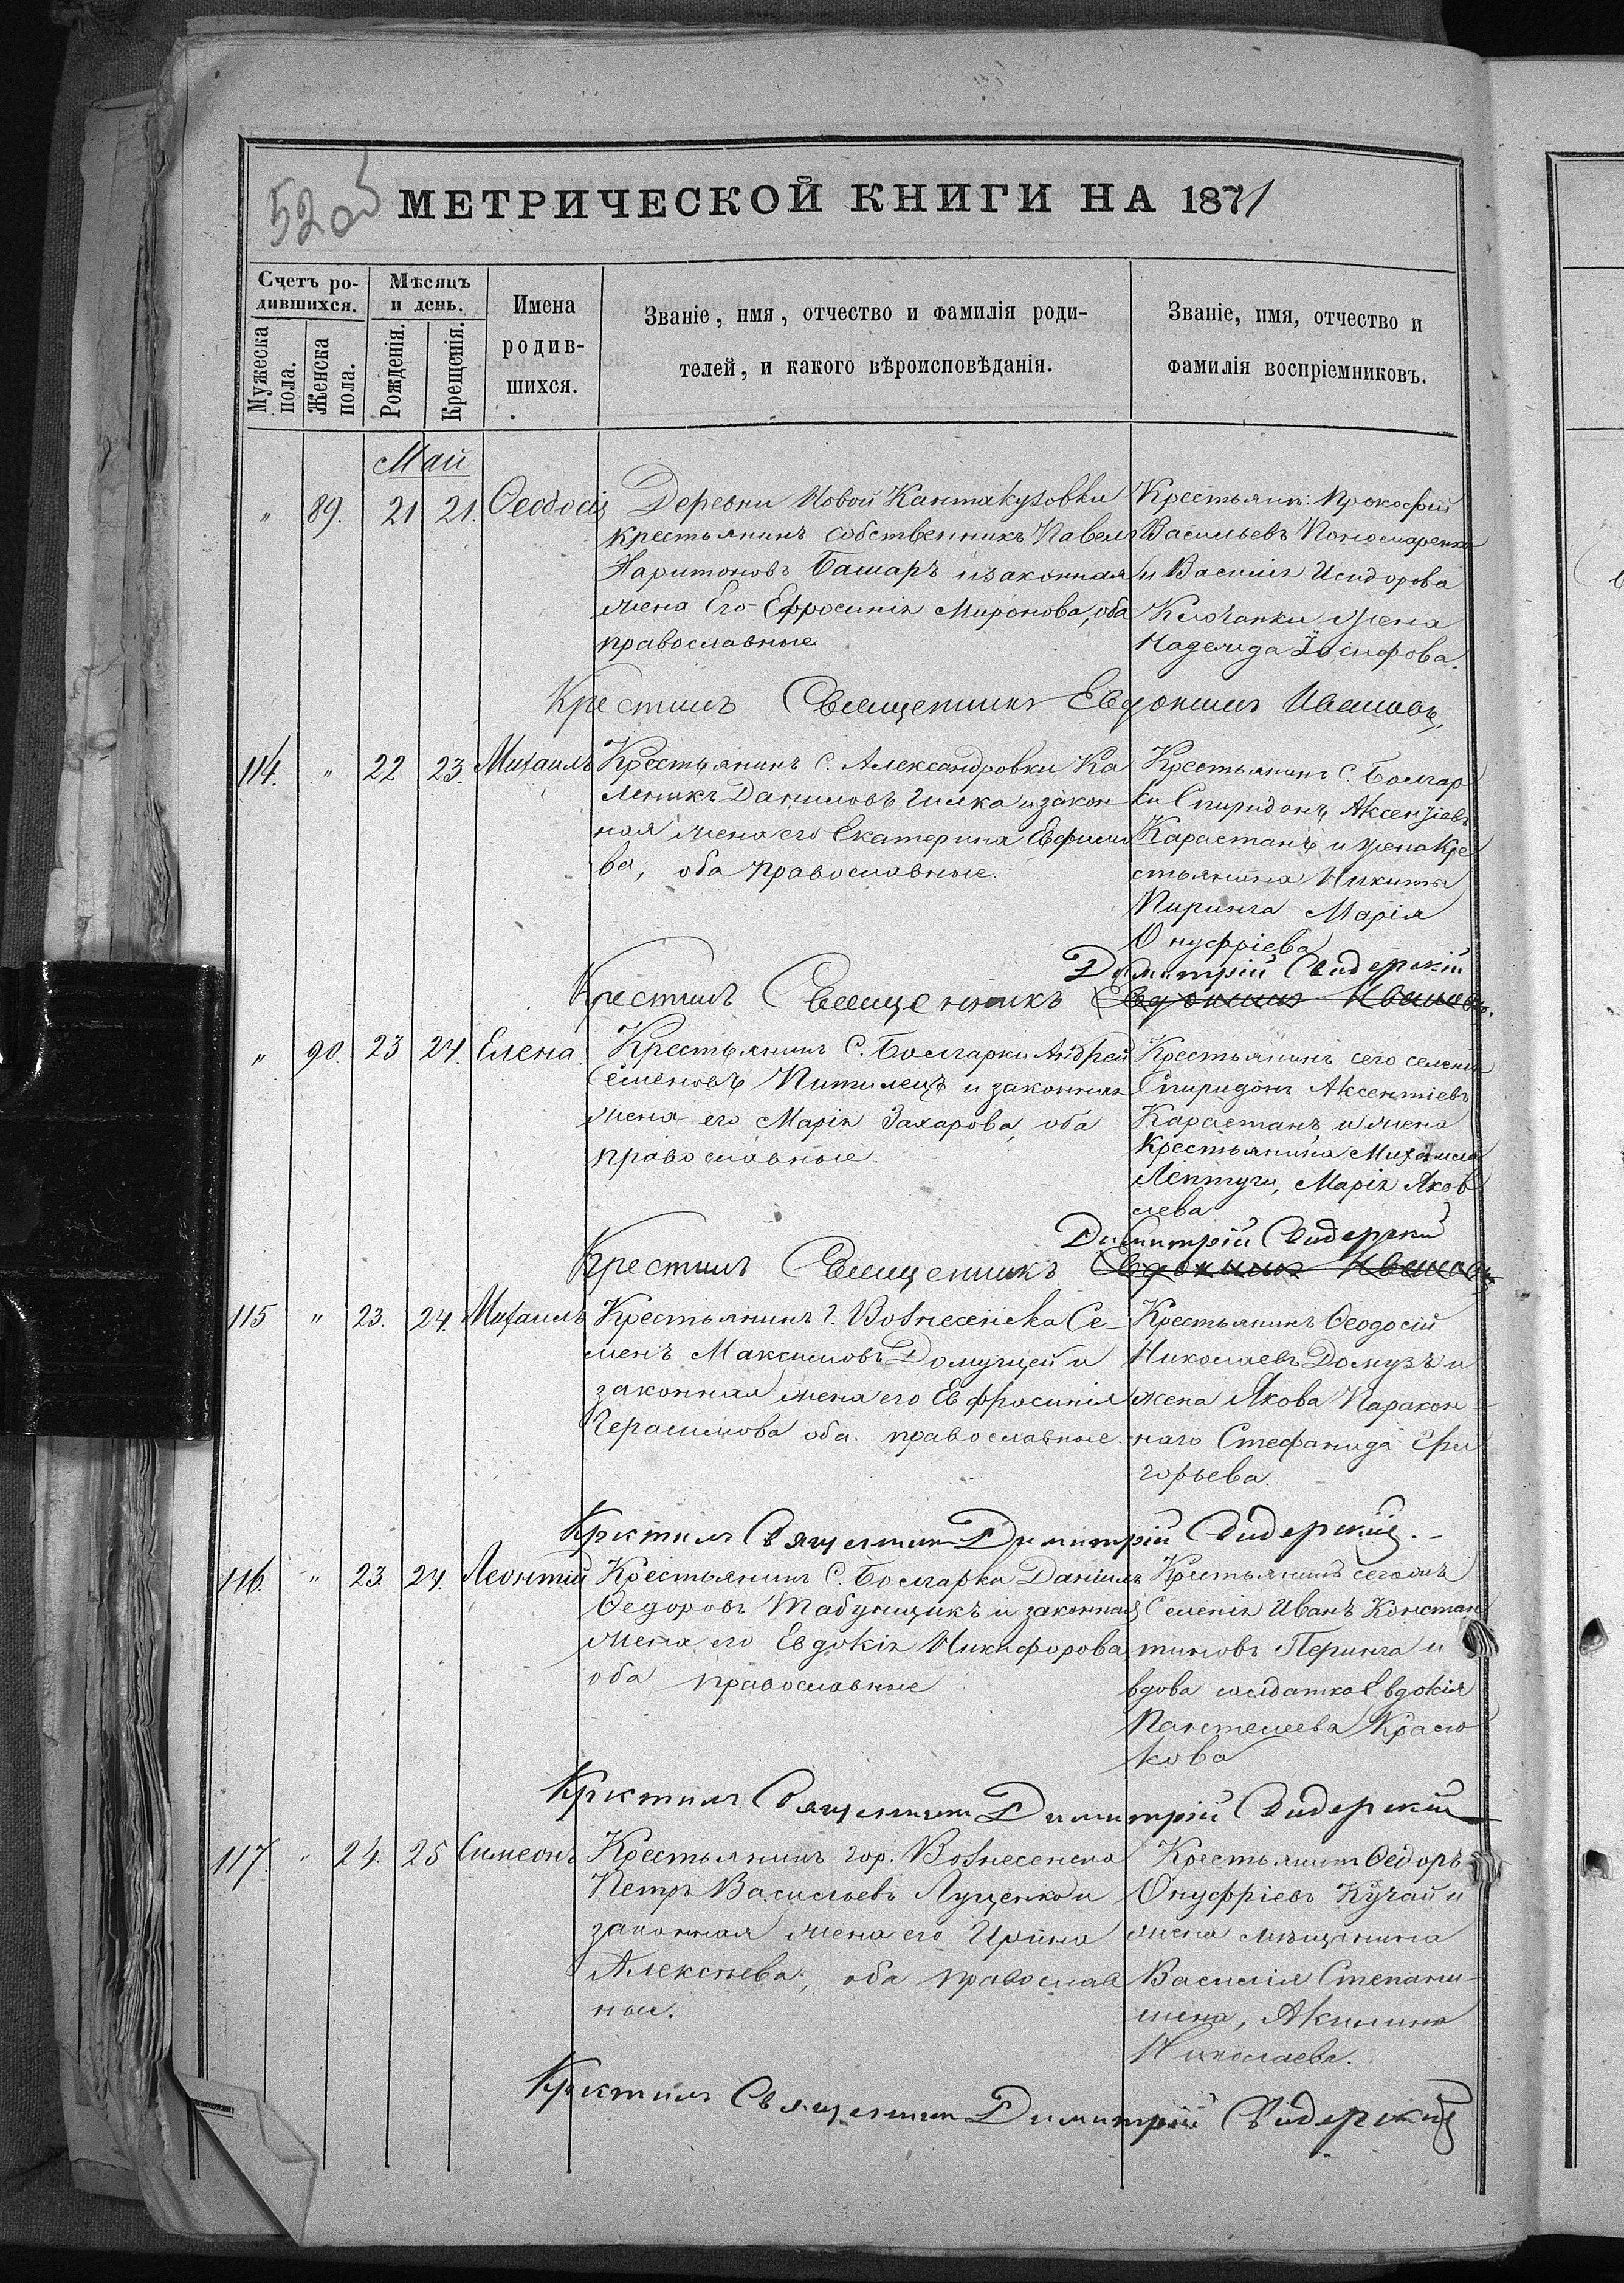 52об
МЕТРИЧЕСКОЙ КНИГИ НА 1871
Счетъ ро-
дившихся.
Мужеска
пола.
Женска
пола.
Мѣсяцъ
и день.
Рожденія.
Крещенія.
Имена
родив-
шихся.
Званіе, имя, отчество и фамилія роди-
телей, и какого вѣроисповѣданія.
Званіе, имя, отчество и
фамилія воспріемниковъ.
Май
" 89. 21 21. Ѳеодосія
Деревни Новой Кантакузовки
крестьянинъ собственникъ Павелъ
Харитоновъ Башаръ и законная
жена Его Ефросинія Миронова, оба
православные.
Крестьянинъ Прокофій
Васильевъ Пономаренко
и Василія Исидорова
жена
Надежда Іосифова.
Крестилъ Священникъ Евдокимъ Ивашовъ.
114. " 22 23. Михаилъ
Крестьянинъ С. Александровки Ка
леникъ Даниловъ Гилка и закон
ная жена его Екатерина Ефимо
ва, оба православные.
Крестьянинъ С. Болгар
ки Спиридонъ Аксентіевъ
Карастанъ и жена Кре
стьянина Никиты
Пиринга Марія
Онуфріева
Димитрій Сидерскій
Крестилъ Священникъ Евдокимъ Ивашовъ.
" 90. 23 24. Елена
Крестьянинъ С. Болгарки Андрей
Семеновъ Питилецъ и законная
жена его Марія Захарова, оба
православные.
Крестьянинъ сего селенія
Спиридонъ Аксентіевъ
Карастанъ и жена
Крестьянина Михаила
Лептуги, Марія Яков
лева
Димитрій Сидерскій
Крестилъ Священникъ Евдокимъ Ивашовъ
115 " 23. 24. Михаилъ
Крестьянинъ г. Вознесенска Се-
менъ Максимовъ Домущей и
законная жена его Евфросинія
Герасимова оба православные.
Крестьянинъ Ѳеодосій
Николаевъ Домузъ и
жена Якова Паракон-
наго Стефанида Гри
горьева.
Крстилъ Священникъ Димитрій Сидерскій.-
116. " 23. 24. Леонтій
Крестьянинъ С. Болгарки Даніилъ
Ѳедоровъ Табунщикъ и законная
жена его Евдокія Никифорова,
оба православные
Крестьянинъ сегожъ
Селенія Иванъ Констан
тиновъ Перинга и
вдова солдатка Евдокія
Пантелеева Красю
кова
Крстилъ Священникъ Димитрій Сидерскій
117. " 24. 25 Симеонъ
Крестьянинъ гор. Вознесенска
Петръ Васильевъ Луценко и
законная жена его Ирина
Алексѣева, оба православ
ные.
Крестьянинъ Ѳедоръ
Онуфріевъ Кучай и
жена мѣщанина
Василія Степани-
шена, Акилина
Николаева.
Крстилъ Священникъ Димитрій Сидерскій